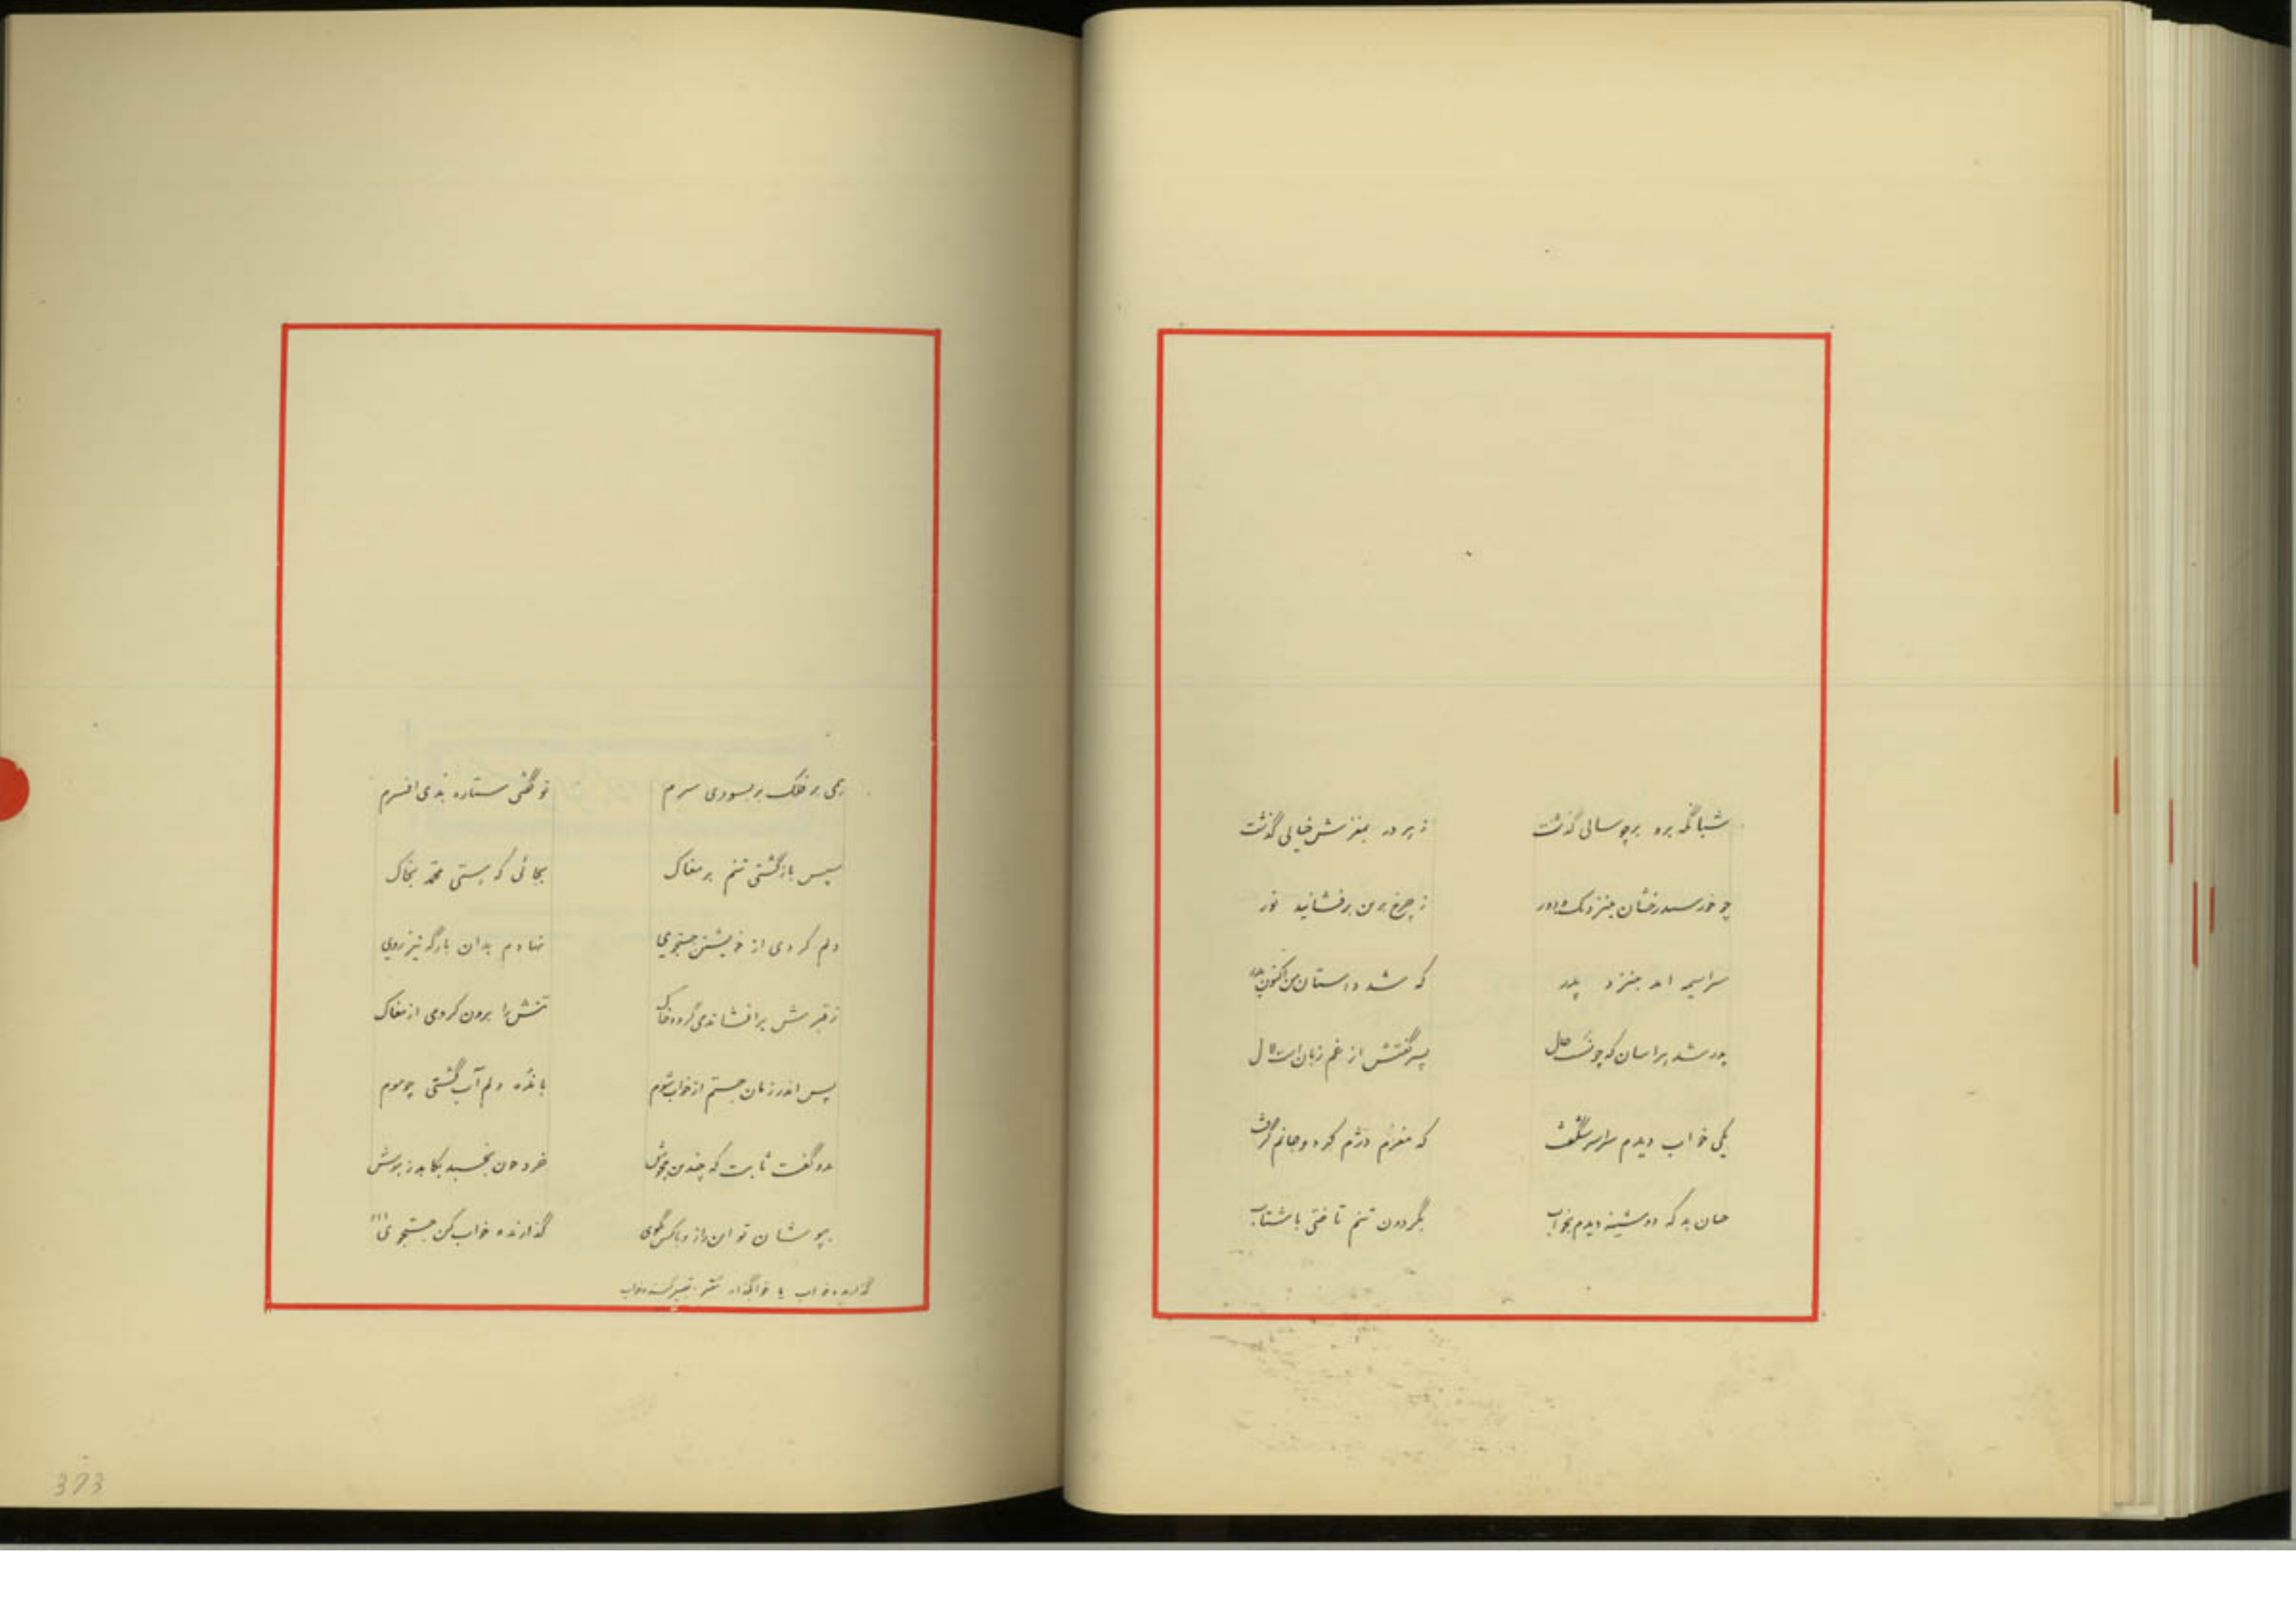 شبانگه برو بر چو سالی گذشت ز پرده بمغزش خیالی گذشت
چو خورشید رخشان بنزدیک و دور ز چرخ برین برفشانید نور
سراسیمه آمد بنزد پدر که شد داستان من اکنون
پدر شد هراسان که چونست حال پسر گفتش از غم زبان است لال
یکی خواب دیدم سراسر شگفت که مغزم دژم کرد و جانم گرفت
چنان بد که دوشینه دیدم بخواب بگردون تنم تاختی باشتاب
همی بر فلک بر بسودی سرم تو گفتی ستاره بدی افسرم
سپس بازگشتی تنم بر مغاک بجائی که بستی محمد بخاک
دلم کردی از خویشتن جستجوی نهادم بدان بارگه تیز روی
ز قبرش برافشاندی گرد و خاک تنش را برون کردی از مغاک
پس اندر زمان جستم از خواب شوم بانده دلم آب گشتی چو موم
بدو گفت ثابت که چندین مجوش خرد چون بخسبد بکابد ز هوش
بپوشان تو این راز و باکس مگوی گذارنده خواب کن جستجوی
گذارنده خواب یا خوابگذار تعبیر کننده خواب
373